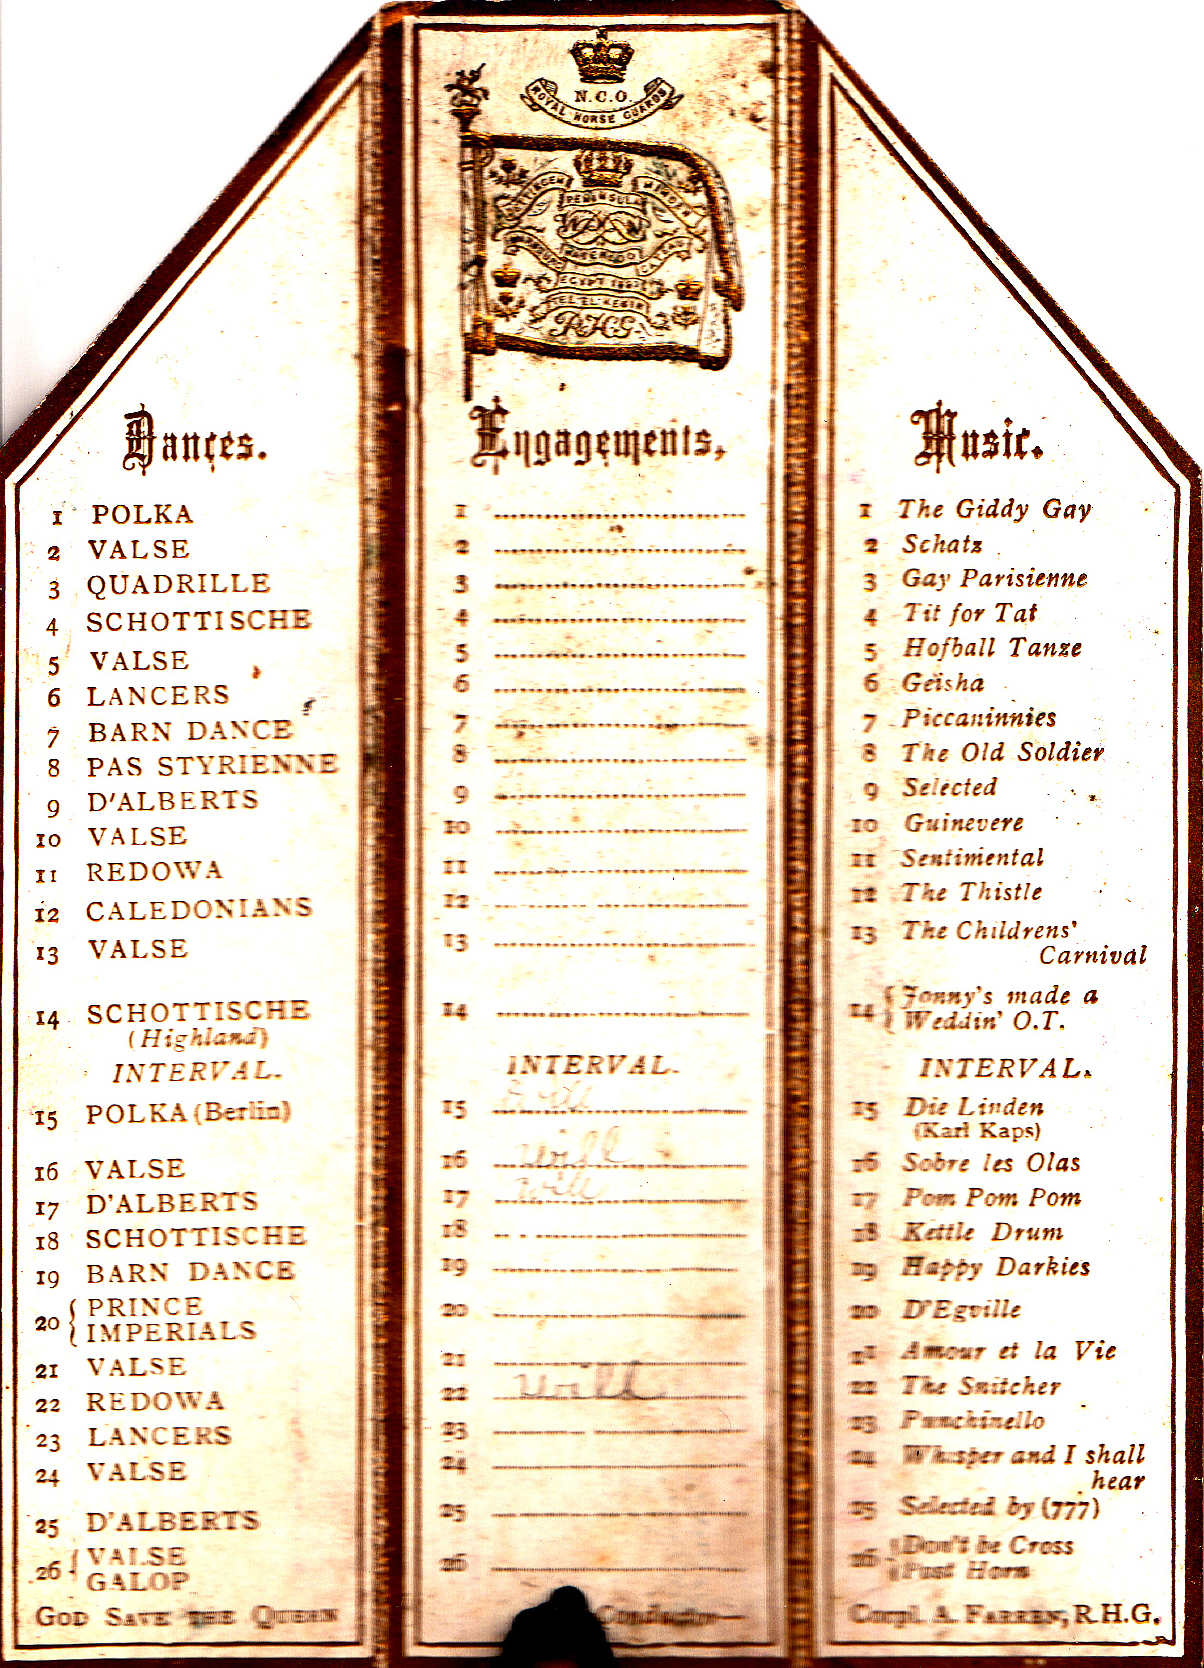 N.C.O.
ROYAL HORSE GUARDS
PENINSULA
WATERLOO
EGYPT 1882
TEL-EL-KEBIR
RHG
Dances.
1 POLKA
2 VALSE
3 QUADRILLE
4 SCHOTTISCHE
5 VALSE
6 LANCERS
7 BARN DANCE
8 PAS STYRIENNE
9 D'ALBERTS
10 VALSE
11 REDOWA
12 CALEDONIANS
13 VALSE
14 SCHOTTISCHE
(Highland)
INTERVAL.
15 POLKA (Berlin)
16 VALSE
17 D'ALBERTS
18 SCHOTTISCHE
19 BARN DANCE
20 { PRINCE
IMPERIALS
21 VALSE
22 REDOWA
23 LANCERS
24 VALSE
25 D'ALBERTS
26 { VALSE
GALOP
GOD SAVE THE QUEEN
Engagements,
1
2
3
4
5
6
7
8
9
10
11
12
13
14
INTERVAL.
15 will
16 will
17 will
18
19
20
21
22 will
23
24
25
26
Conductor—
Music.
1 The Giddy Gay
2 Schatz
3 Gay Parisienne
4 Tit for Tat
5 Hofball Tanze
6 Geisha
7 Piccaninnies
8 The Old Soldier
9 Selected
10 Guinevere
11 Sentimental
12 The Thistle
13 The Childrens'
Carnival
14 { Jonny's made a
Weddin' O.T.
INTERVAL.
15 Die Linden
(Karl Kaps)
16 Sobre les Olas
17 Pom Pom Pom
18 Kettle Drum
19 Happy Darkies
20 D'Egville
21 Amour et la Vie
22 The Snitcher
23 Punchinello
24 Whisper and I shall
hear
25 Selected by (777)
26 { Don't be Cross
Post Horn
Corpl. A. FARREN, R.H.G.